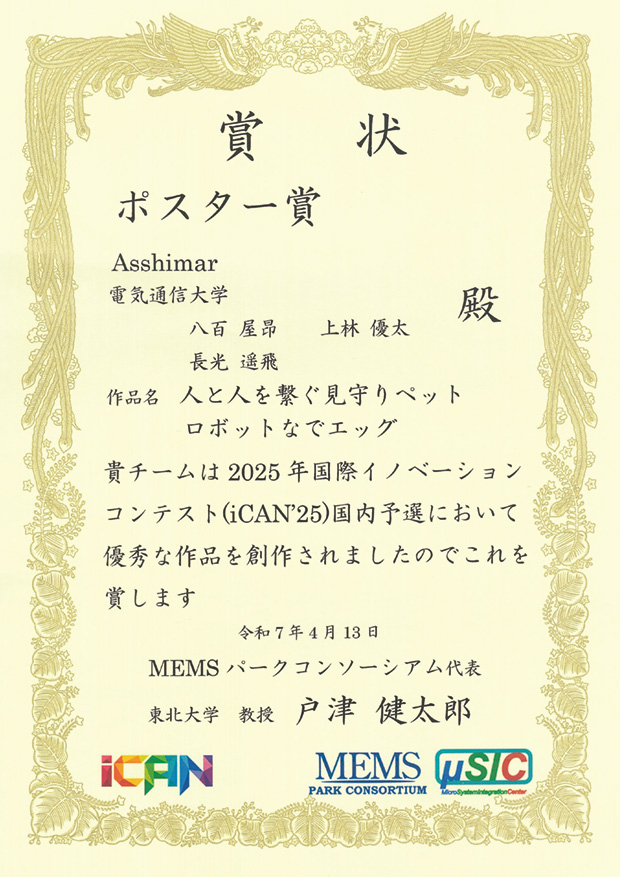 賞 状
ポスター賞
Asshimar
電気通信大学
殿
八百 屋昂 上林 優太
長光 遥飛
作品名 人と人を繋ぐ見守りペット
ロボットなでエッグ
貴チームは 2025 年国際イノベーション
コンテスト(iCAN’25)国内予選において
優秀な作品を創作されましたのでこれを
賞します
令和 7 年 4 月 13 日
MEMS パークコンソーシアム代表
東北大学 教授 戸津 健太郎
iCAN
MEMS
PARK CONSORTIUM
μSIC
MicroSystemIntegrationCenter